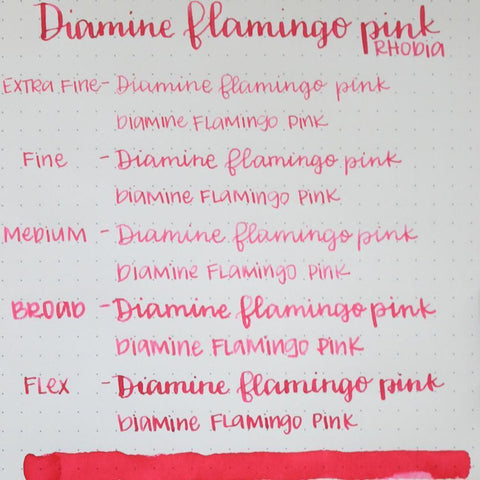 Diamine flamingo pink
RHODIA
EXTRA FINE- Diamine flamingo pink
DIAMINE FLAMINGO PINK
FINE - Diamine flamingo pink
DIAMINE FLAMINGO PINK
MEDIUM - Diamine flamingo pink
DIAMINE FLAMINGO PINK
BROAD - Diamine flamingo pink
DIAMINE FLAMINGO PINK
FLEX - Diamine flamingo pink
DIAMINE FLAMINGO PINK